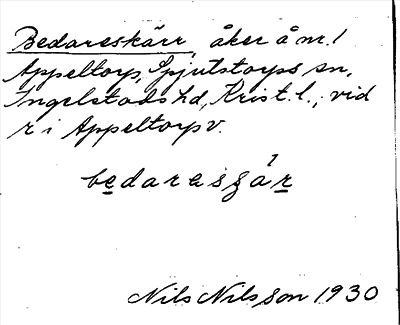 Bedareskärr, åker å nr. 1
Appeltorp, Spjutstorps sn,
Ingelstads hd, Krist. l.; vid
r i Appeltorp v.
bedaresgár
Nils Nilsson 1930